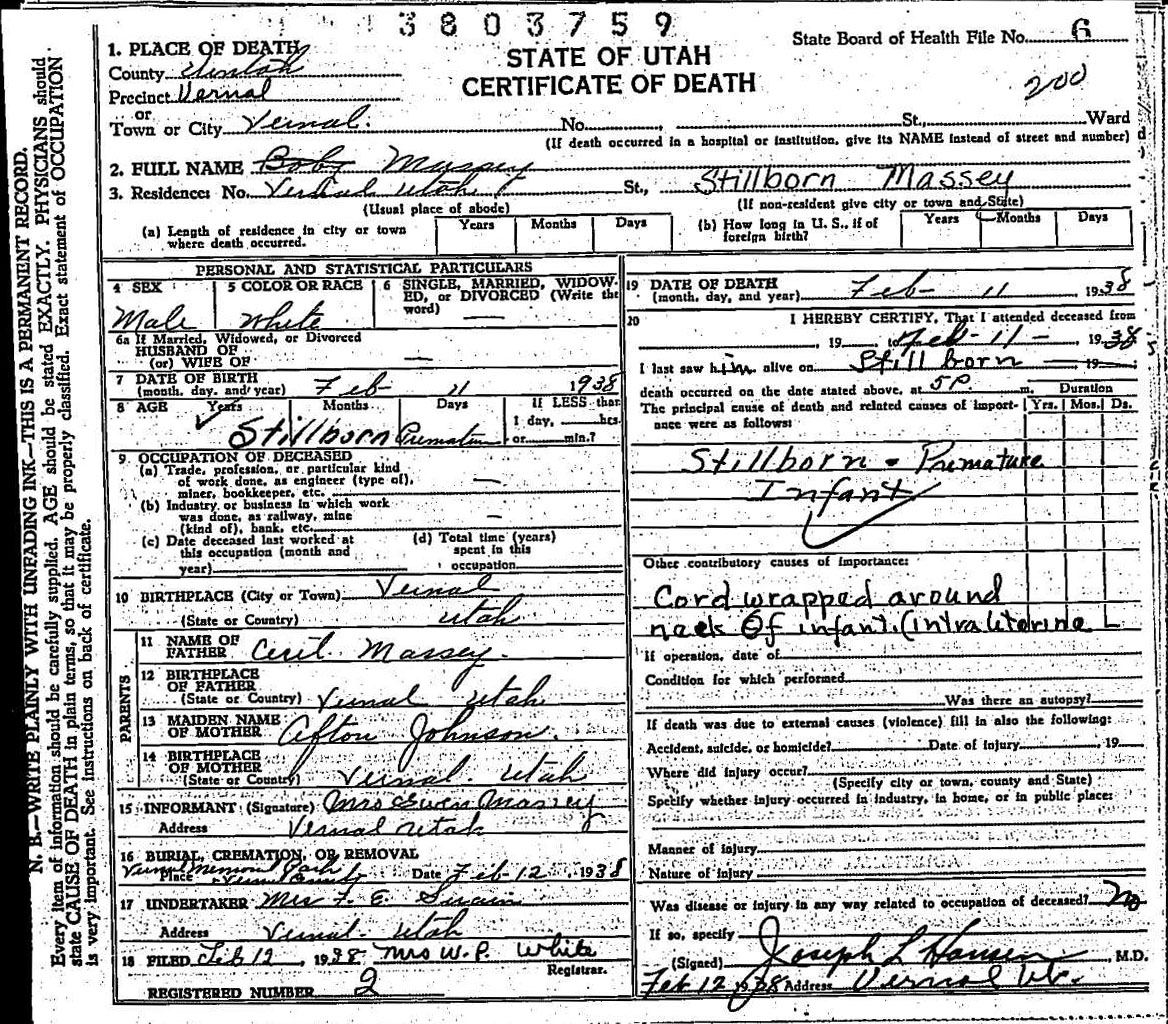 3803759
State Board of Health File No. 6
STATE OF UTAH
CERTIFICATE OF DEATH
200
1. PLACE OF DEATH
County Uintah
Precinct Vernal
or
Town or City Vernal. No. St., Ward
(If death occurred in a hospital or institution, give its NAME instead of street and number)
2. FULL NAME Boby Massey
Stillborn Massey
3. Residence: No. Vernal Utah St.,
(Usual place of abode) (If non-resident give city or town and State)
(a) Length of residence in city or town where death occurred. Years Months Days
(b) How long in U. S., if of foreign birth? Years Months Days
PERSONAL AND STATISTICAL PARTICULARS
4 SEX Male
5 COLOR OR RACE White
6 SINGLE, MARRIED, WIDOWED, or DIVORCED (Write the word) —
6a If Married, Widowed, or Divorced
HUSBAND OF
(or) WIFE OF —
7 DATE OF BIRTH
(month, day, and year) Feb 11 1938
8 AGE Years Months Days If LESS than
1 day, hrs.
or min.?
Stillborn Premature
9 OCCUPATION OF DECEASED
(a) Trade, profession, or particular kind
of work done, as engineer (type of),
miner, bookkeeper, etc. —
(b) Industry or business in which work
was done, as railway, mine
(kind of), bank, etc. —
(c) Date deceased last worked at
this occupation (month and
year)
(d) Total time (years)
spent in this
occupation
10 BIRTHPLACE (City or Town) Vernal
(State or Country) Utah
PARENTS
11 NAME OF
FATHER Cecil Massey
12 BIRTHPLACE
OF FATHER
(State or Country) Vernal Utah
13 MAIDEN NAME
OF MOTHER Afton Johnson.
14 BIRTHPLACE
OF MOTHER
(State or Country) Vernal Utah
15 INFORMANT (Signature) Mrs Massey
Address Vernal Utah
16 BURIAL, CREMATION, OR REMOVAL
Place Vernal Memorial Park Date Feb 12 1938
17 UNDERTAKER Mrs F. E. Swain
Address Vernal Utah
18 FILED Feb 12, 1938 Mrs W. P. White
Registrar.
REGISTERED NUMBER 2
19 DATE OF DEATH
(month, day, and year) Feb 11 1938
20 I HEREBY CERTIFY, That I attended deceased from
, 19 to Feb-11- 1938
I last saw him alive on Stillborn 19
death occurred on the date stated above, at 5P m. Duration
The principal cause of death and related causes of importance were as follows: Yrs. Mos. Ds.
Stillborn - Premature
Infant
Other contributory causes of importance:
Cord wrapped around
neck of infant. (intrauterine
If operation, date of
Condition for which performed
Was there an autopsy?
If death was due to external causes (violence) fill in also the following:
Accident, suicide, or homicide? Date of injury , 19
Where did injury occur?
(Specify city or town, county and State)
Specify whether injury occurred in industry, in home, or in public place:
Manner of injury
Nature of injury
Was disease or injury in any way related to occupation of deceased? No
If so, specify
(Signed) Joseph L Hansen, M.D.
Feb 12 1938 Address Vernal Ut.
N. B.—WRITE PLAINLY WITH UNFADING INK—THIS IS A PERMANENT RECORD.
Every item of information should be carefully supplied. AGE should be stated EXACTLY. PHYSICIANS should
state CAUSE OF DEATH in plain terms, so that it may be properly classified. Exact statement of OCCUPATION
is very important. See instructions on back of certificate.